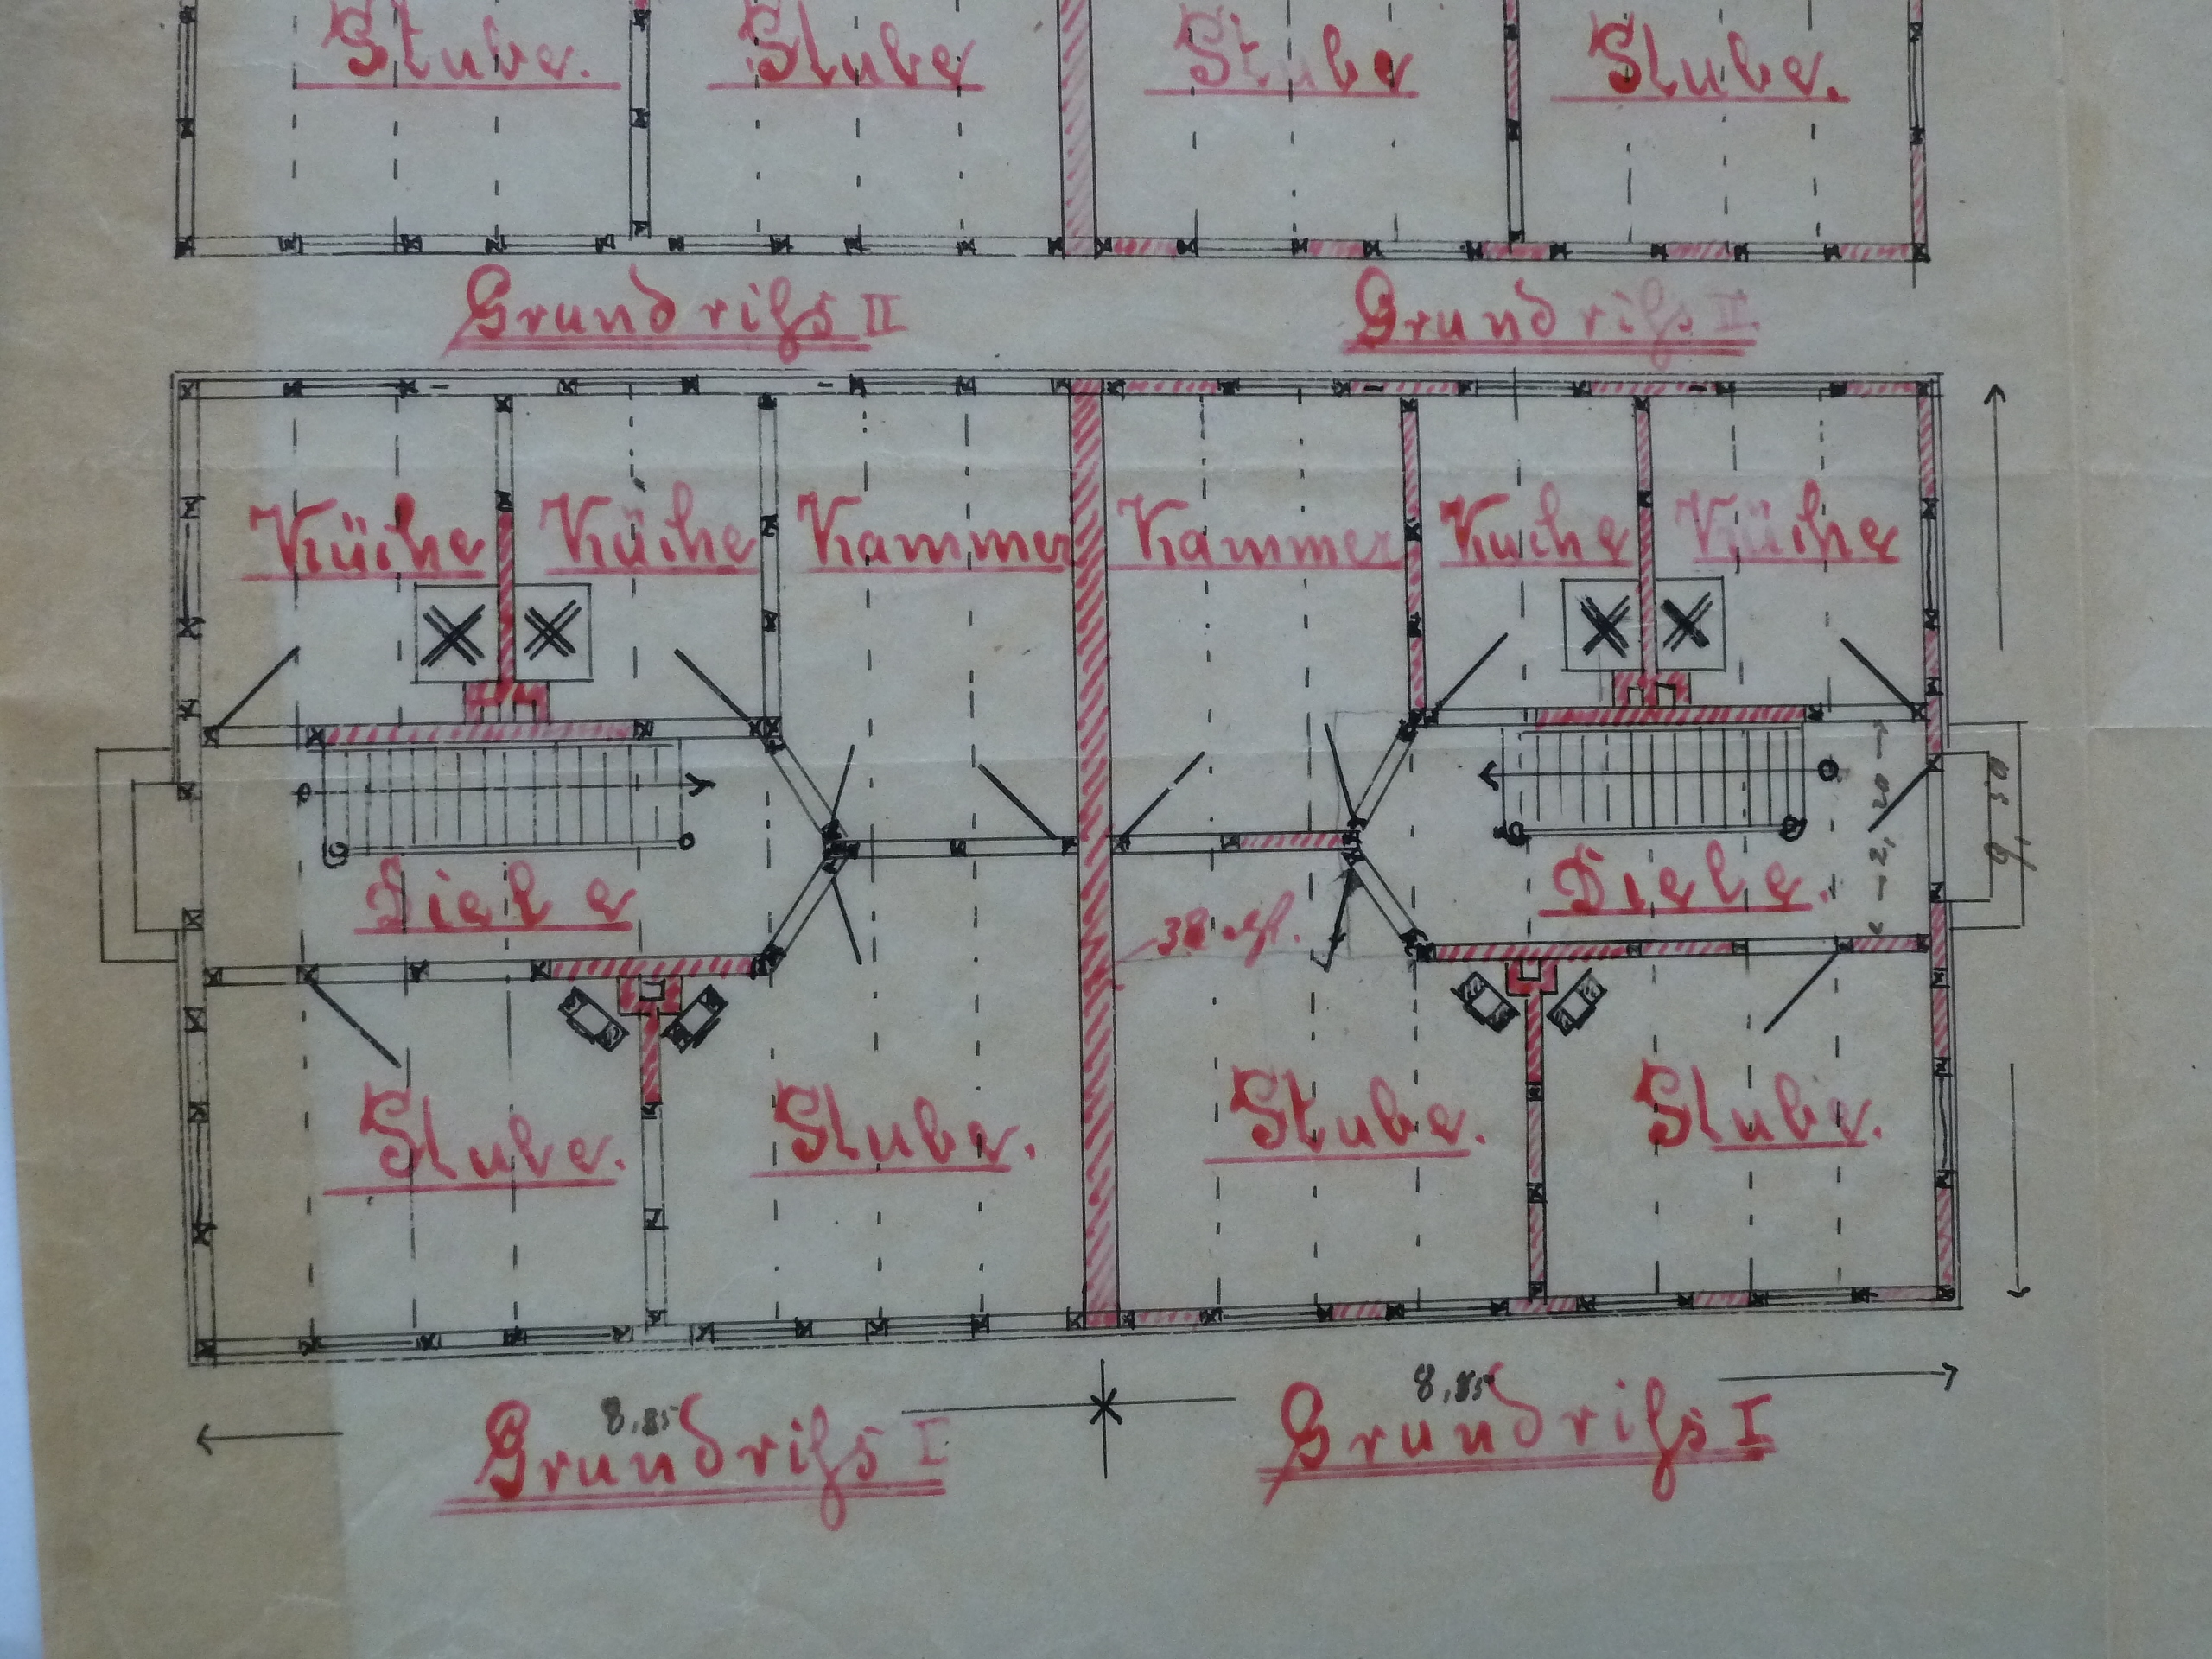 Stube. Stube Stube Stube.
Grundriſs II Grundriſs II
Küche Küche Kammer Kammer Kuche Küche
2,20
9,50
Diele Diele.
38
Stube. Stube. Stube. Stube.
8,85 8,85
Grundriſs I Grundriſs I